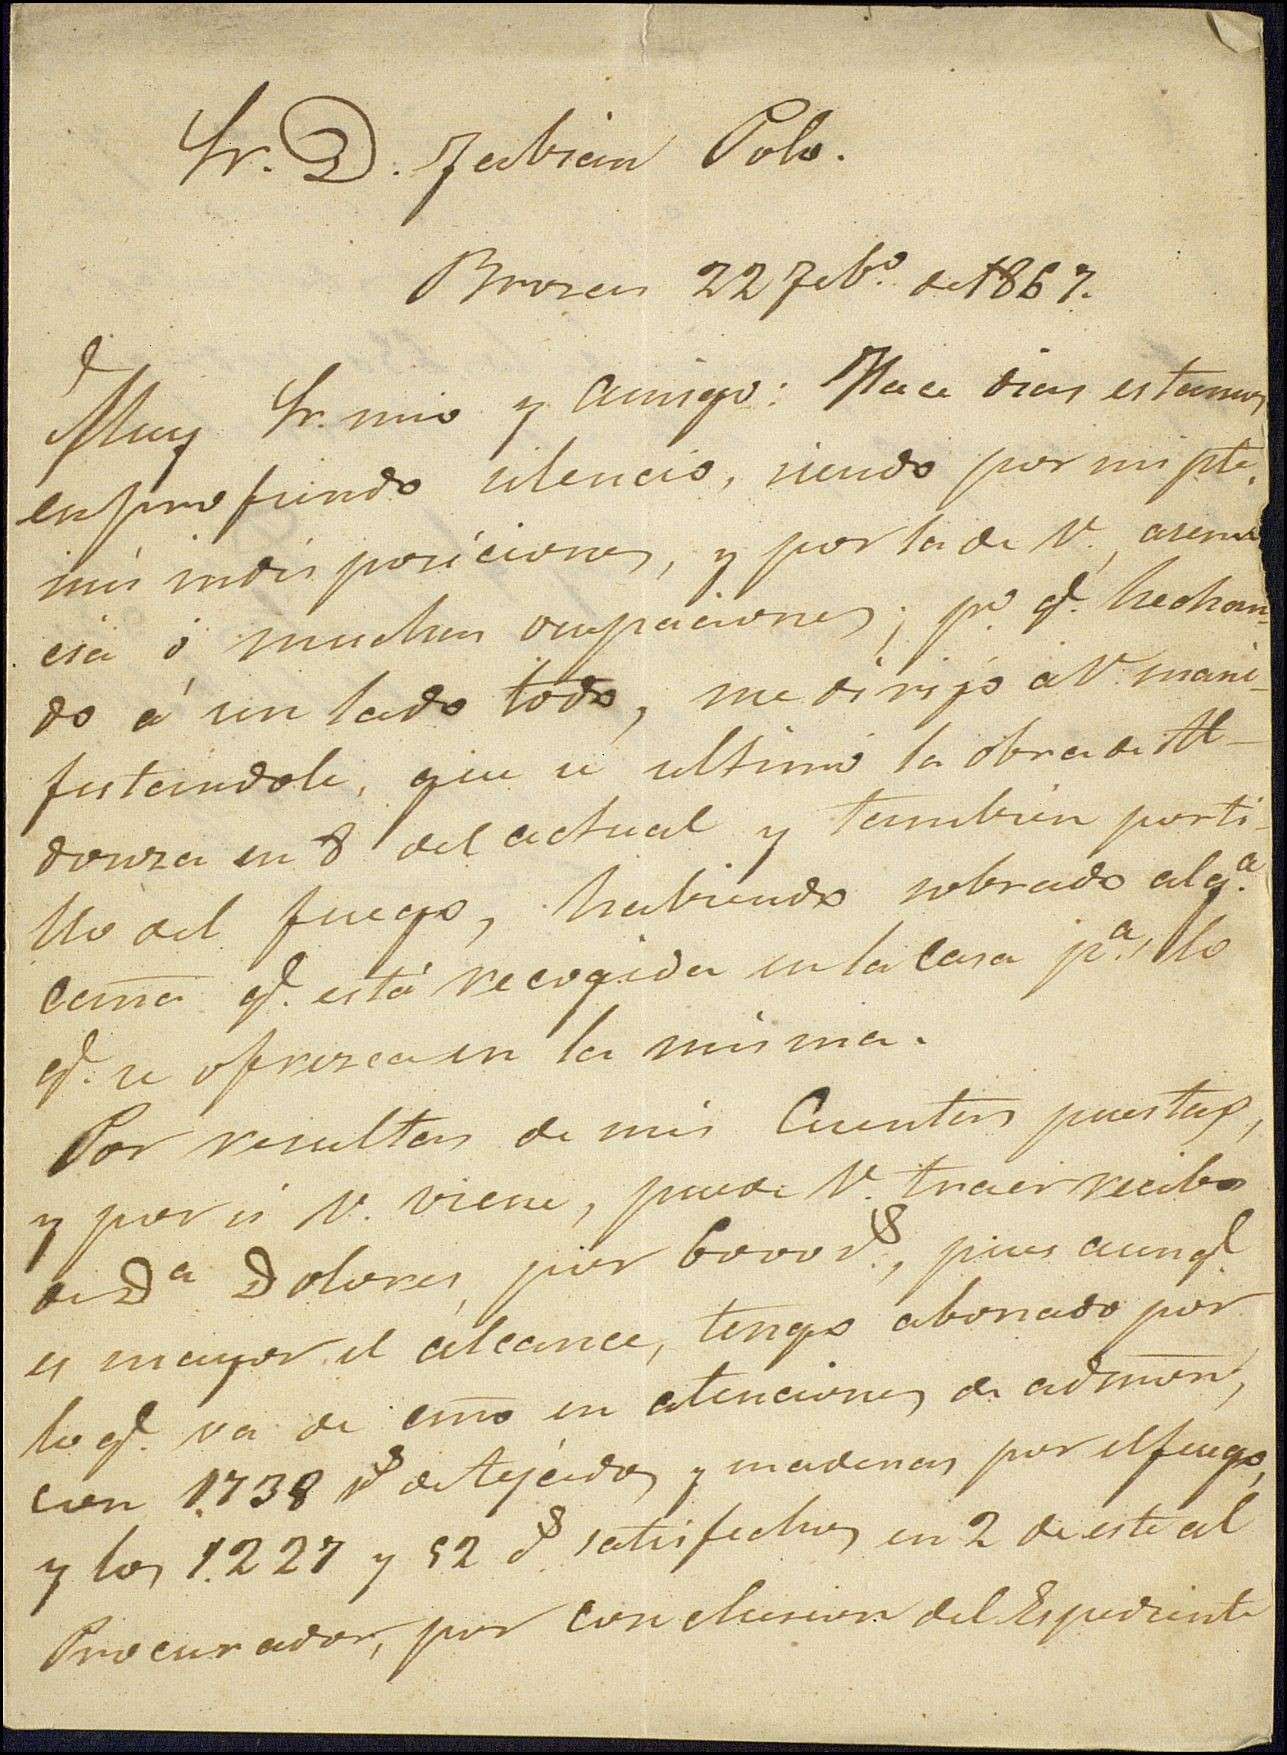 Sr. D. Fabian Polo.
Brozas 22 Feb.º de 1867.
Muy Sr. mio y amigo: Hace dias estamos
en profundo silencio, siendo por mi pte.
mis indisposiciones, y por la de V. ausen-
cia ó muchas ocupaciones; p.º q.e hechan-
do á un lado todo, me dirijo a V. mani-
festandole, que se ultimó la obra de Al-
donza en 8 del actual y tambien porti-
llo del fuego, habiendo sobrado alg.a
caña q.e está recogida en la casa p.a lo
q.e se ofrezca en la misma.
Por resultas de mis Cuentas puestas,
y por si V. viene, puede V. traer recibo
de D.a Dolores, por 6000 r.s, pues aunq.e
es mayor el alcance, tengo abonado por
lo q.e va de año en atenciones de admon,
con 1.738 r.s de tejados y maderas por el fuego,
y los 1.227 y 52 c.s satisfechos en 2 de este al
Procurador, por conclusion del Espediente